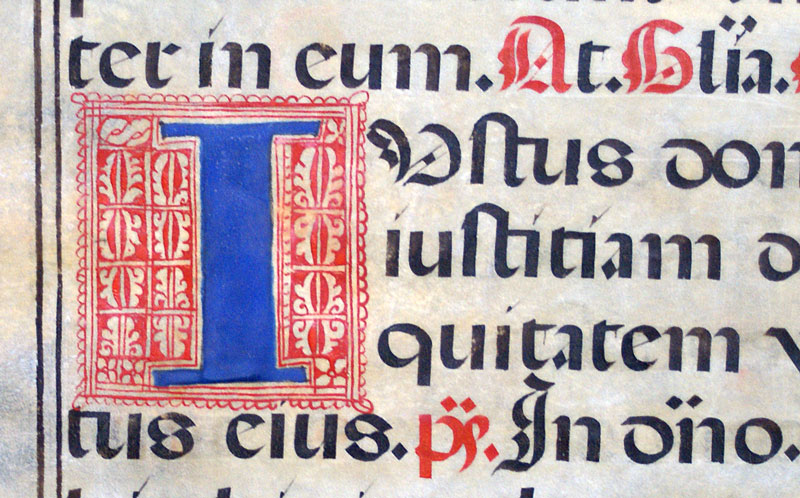 ter in eum. At. Glia.
IUstus dom
iustitiam d
quitatem v
tus eius. ps. In dño.